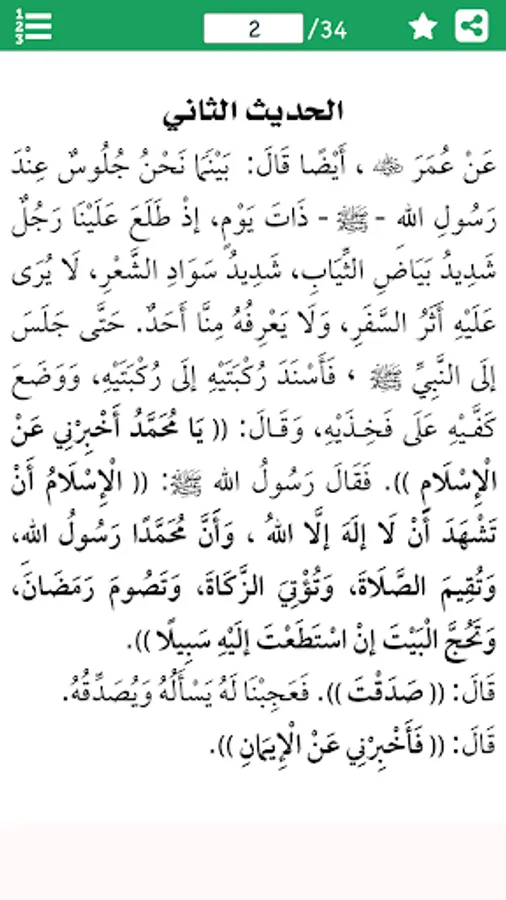 2 /34
الحديث الثاني
عَنْ عُمَرَ ﵁ ، أَيْضًا قَالَ: بَيْنَمَا نَحْنُ جُلُوسٌ عِنْدَ
رَسُولِ الله - ﷺ - ذَاتَ يَوْمٍ، إِذْ طَلَعَ عَلَيْنَا رَجُلٌ
شَدِيدُ بَيَاضِ الثِّيَابِ، شَدِيدُ سَوَادِ الشَّعْرِ، لَا يُرَى
عَلَيْهِ أَثَرُ السَّفَرِ، وَلَا يَعْرِفُهُ مِنَّا أَحَدٌ. حَتَّى جَلَسَ
إِلَى النَّبِيِّ ﷺ ، فَأَسْنَدَ رُكْبَتَيْهِ إِلَى رُكْبَتَيْهِ، وَوَضَعَ
كَفَّيْهِ عَلَى فَخِذَيْهِ، وَقَالَ: (( يَا مُحَمَّدُ أَخْبِرْنِي عَنْ
الْإِسْلَامِ )). فَقَالَ رَسُولُ الله ﷺ: (( الْإِسْلَامُ أَنْ
تَشْهَدَ أَنْ لَا إِلَهَ إلَّا اللهُ ، وَأَنَّ مُحَمَّدًا رَسُولُ الله،
وَتُقِيمَ الصَّلَاةَ، وَتُؤْتِيَ الزَّكَاةَ، وَتَصُومَ رَمَضَانَ،
وَتَحُجَّ الْبَيْتَ إنْ اسْتَطَعْتَ إلَيْهِ سَبِيلًا )).
قَالَ: (( صَدَقْتَ )). فَعَجِبْنَا لَهُ يَسْأَلُهُ وَيُصَدِّقُهُ.
قَالَ: (( فَأَخْبِرْنِي عَنْ الْإِيمَانِ )).